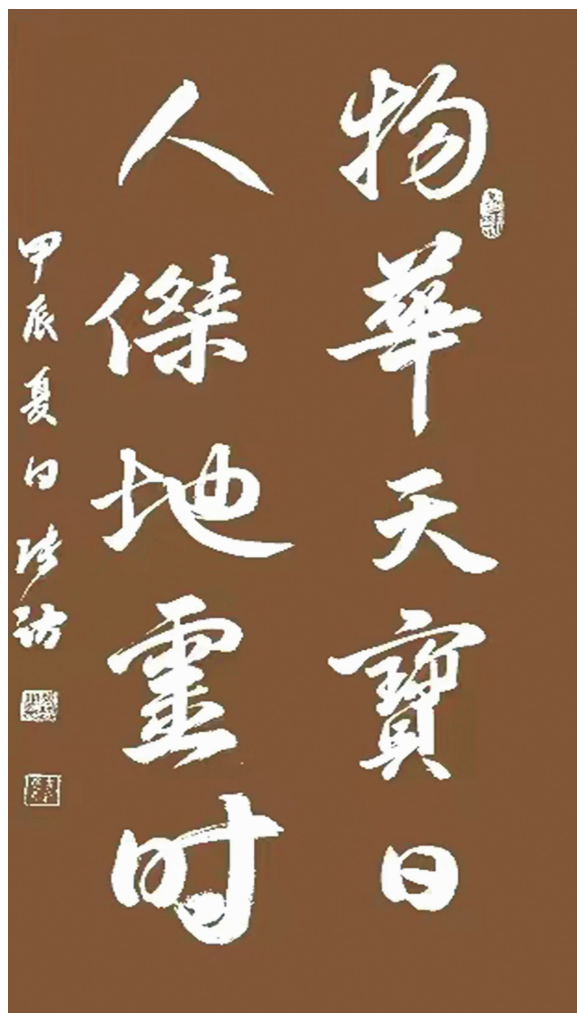 物華天寶日
人傑地靈时
甲辰夏日張訪